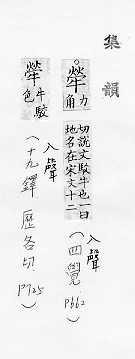 集韻
犖力角切說文駁牛也一曰地名在宋文十二
入聲
(四覺 P662)
犖牛駁色
入聲
(十九鐸 歷各切 P725)